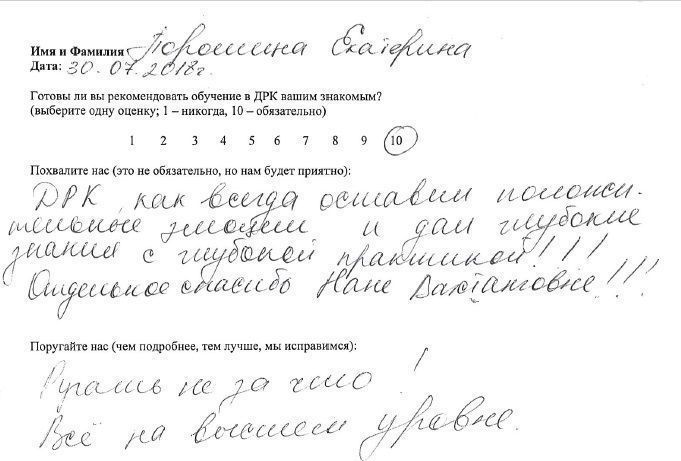 Имя и Фамилия Порошина Екатерина
Дата: 30.07.2018г.
Готовы ли вы рекомендовать обучение в ДРК вашим знакомым?
(выберите одну оценку; 1 – никогда, 10 – обязательно)
1 2 3 4 5 6 7 8 9 10
Похвалите нас (это не обязательно, но нам будет приятно):
ДРК, как всегда оставил положи-
тельные эмоции и дал глубокие
знания с глубокой практикой!!!
Отдельное спасибо Нане Вахтанговне!!!
Поругайте нас (чем подробнее, тем лучше, мы исправимся):
Ругать не за что!
Всё на высшем уровне.